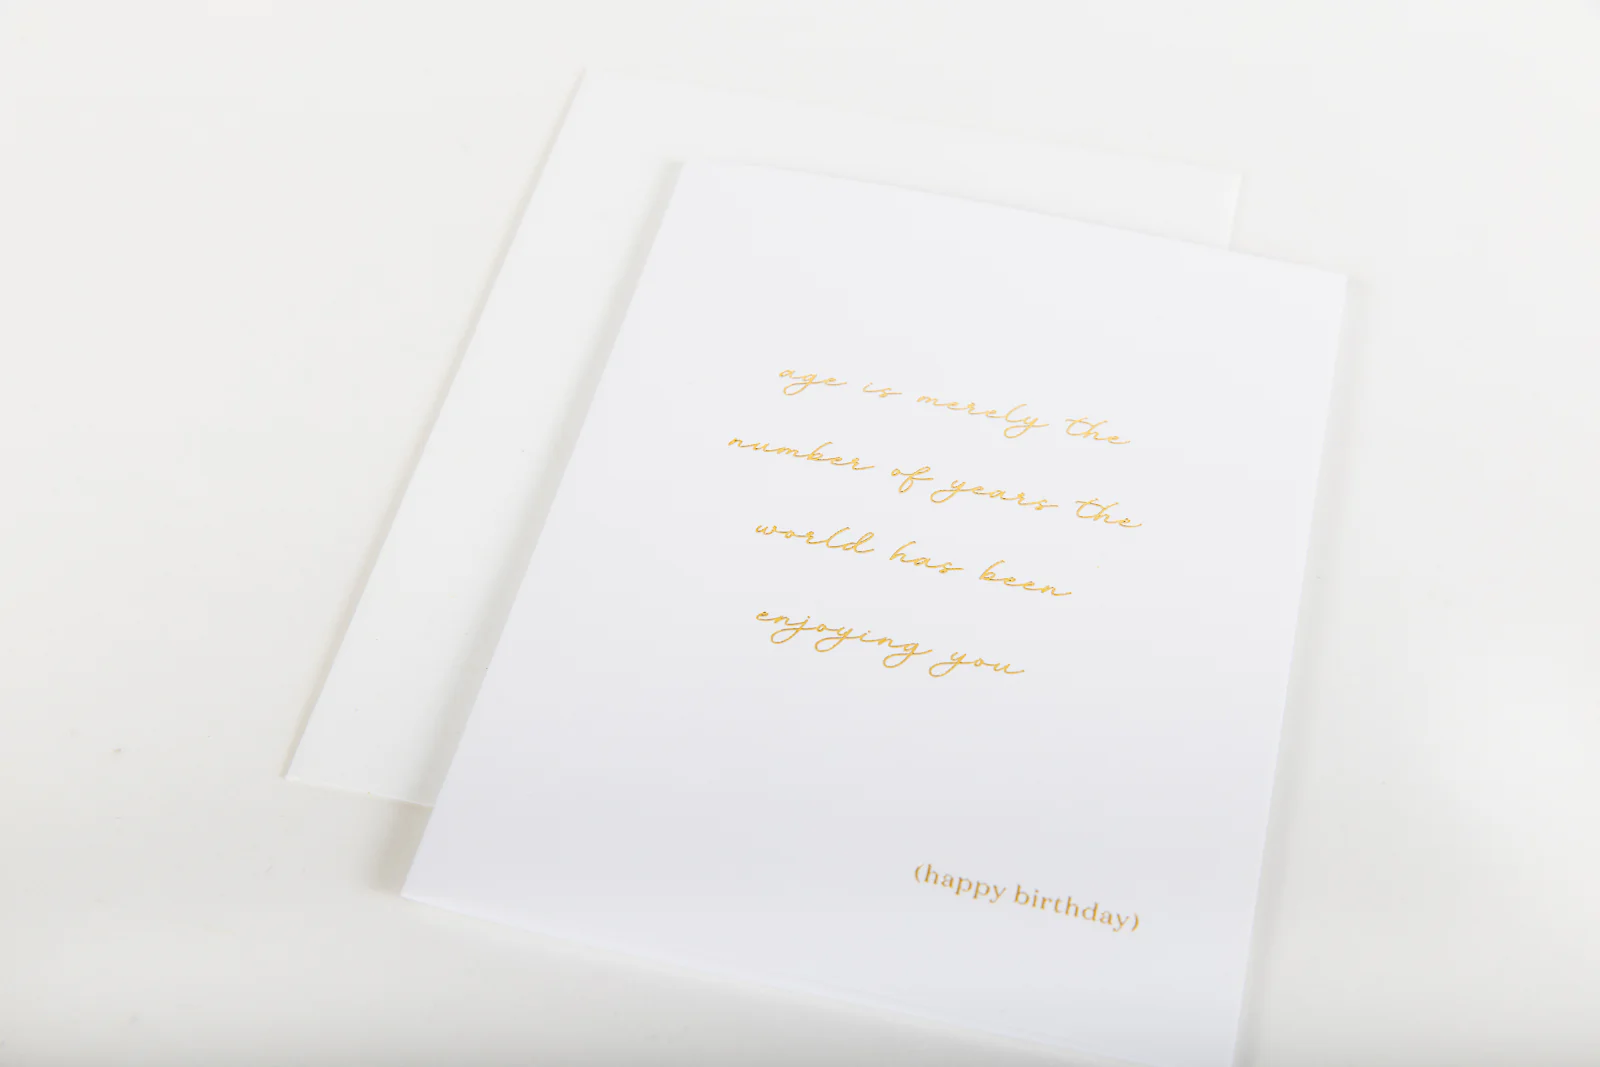 age is merely the
number of years the
world has been
enjoying you
(happy birthday)